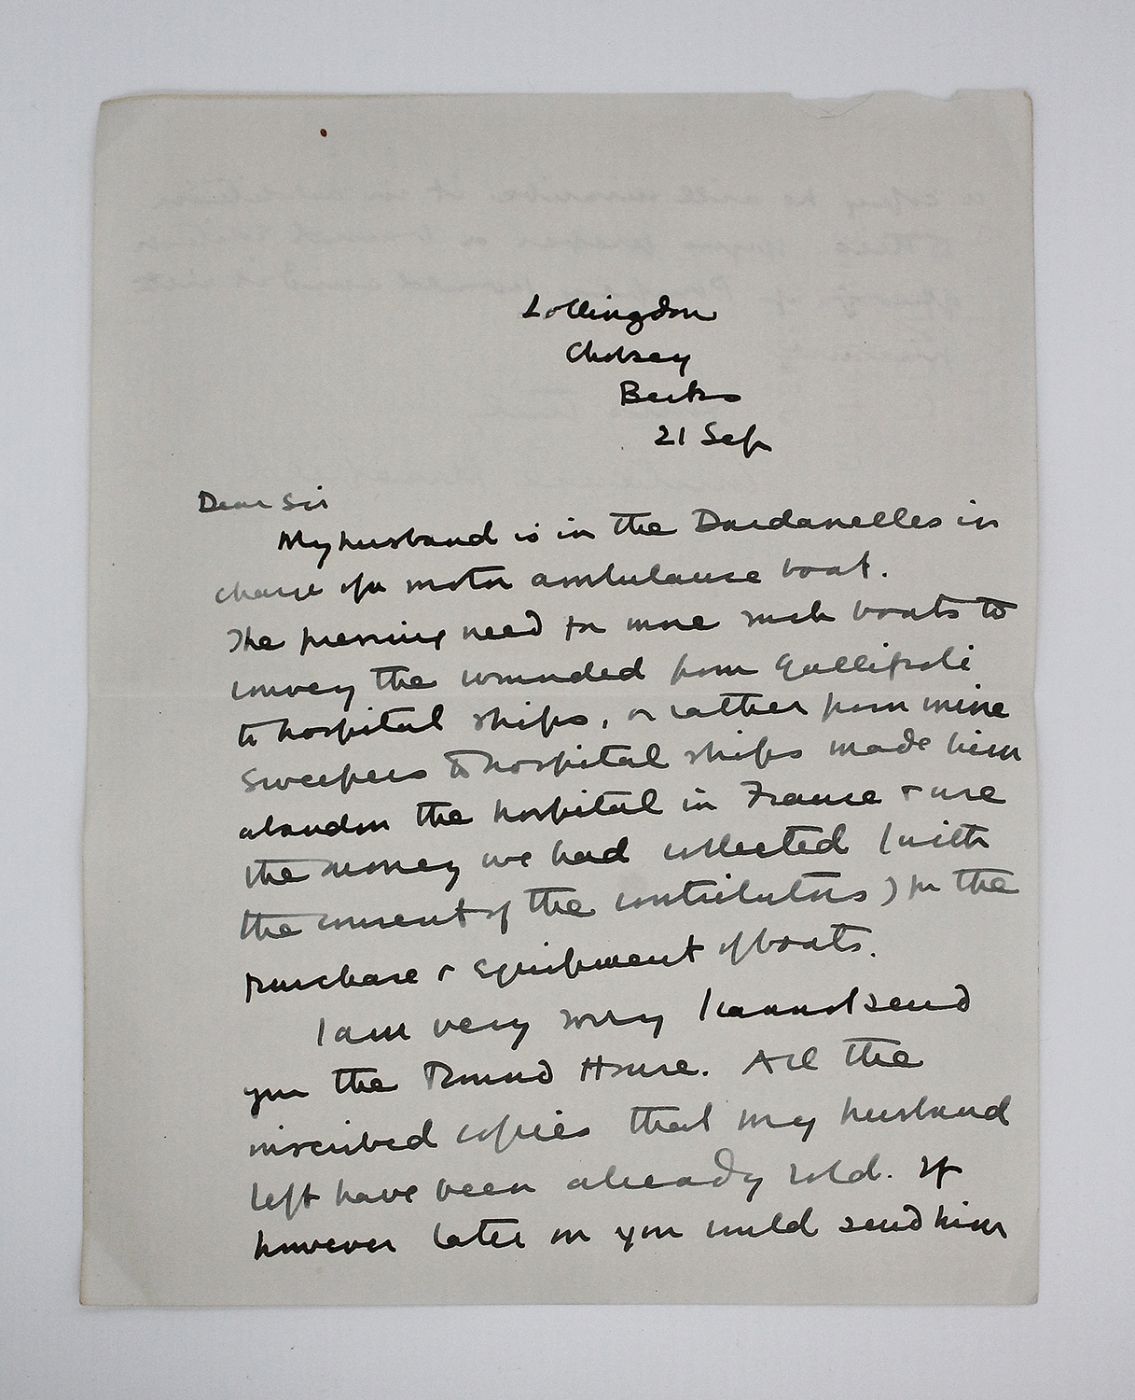 Lollingdon
Cholsey
Berks
21 Sep
Dear Sir
My husband is in the Dardanelles in
charge of a motor ambulance boat.
The pressing need for more such boats to
convey the wounded from Gallipoli
to hospital ships, or rather from mine
sweepers to hospital ships made him
abandon the hospital in France & use
the money we had collected (with
the consent of the contributors) for the
purchase & equipment of boats.
I am very sorry I cannot send
you the Round House. All the
inscribed copies that my husband
left have been already sold. If
however later on you could send him